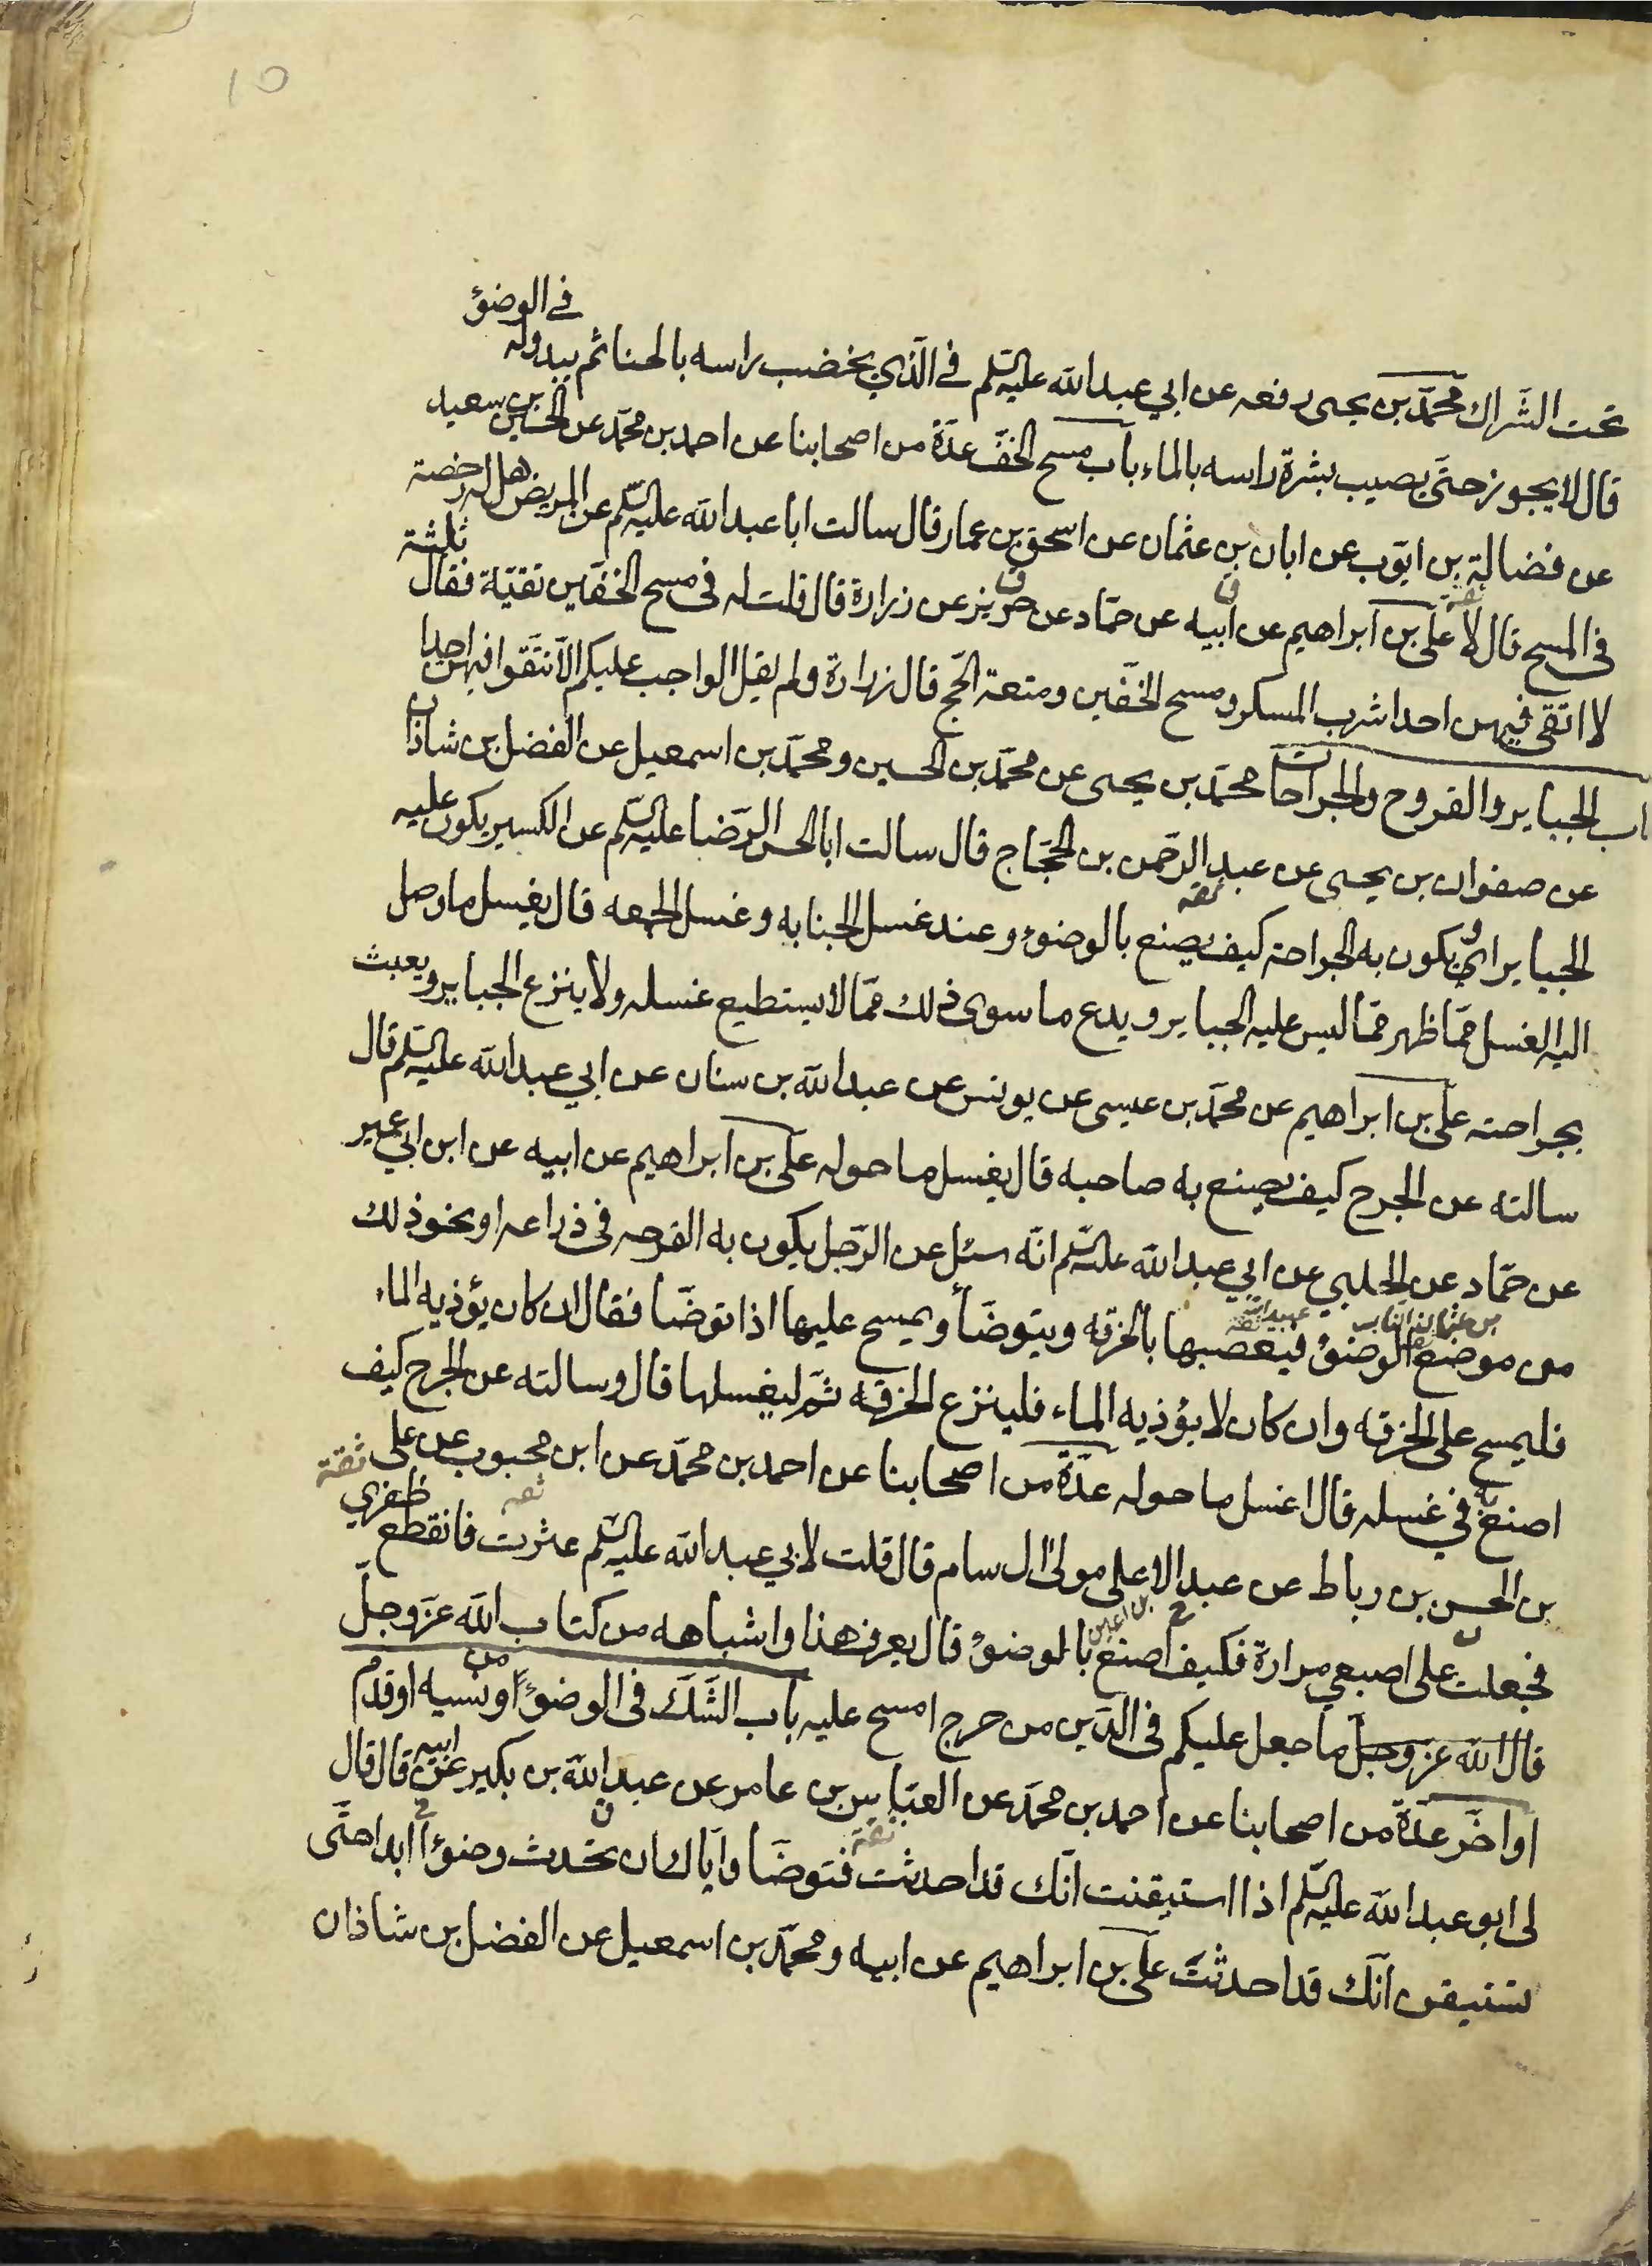 10
تحت الشراك محمد بن يحيى رفعه عن ابي عبدالله عليه السلم في الذي يخضب راسه بالحنا ثم يبدو له في الوضوء
قال لا يجوز حتى يصيب بشرة راسه بالماء باب مسح الخف عدة من اصحابنا عن احمد بن محمد عن الحسين بن سعيد
عن فضالة بن ايوب عن ابان بن عثمان عن اسحق بن عمار قال سالت ابا عبدالله عليه السلم عن المريض هل له رخصة
في المسح قال لا علي بن ابراهيم عن ابيه عن حماد عن حريز عن زرارة قال قلت له في مسح الخفين تقية فقال ثلثة
لا اتقى فيهن احدا شرب المسكر ومسح الخفين ومتعة الحج قال زرارة ولم يقل الواجب عليكم الا تتقوا فيهن احدا
اب الجباير والقروح والجراحات محمد بن يحيى عن محمد بن الحسين ومحمد بن اسمعيل عن الفضل بن شاذان
عن صفوان بن يحيى عن عبد الرحمن بن الحجاج قال سالت ابا الحسن الرضا عليه السلم عن الكسير يكون عليه
الجباير او يكون به الجراحة كيف يصنع بالوضوء وعند غسل الجنابه وغسل الجمعه قال يغسل ما وصل
اليه الغسل مما ظهر مما ليس عليه الجباير ويدع ما سوى ذلك مما لا يستطيع غسله ولا ينزع الجباير ويعبث
بجراحته علي بن ابراهيم عن محمد بن عيسى عن يونس عن عبدالله بن سنان عن ابي عبدالله عليه السلم قال
سالته عن الجرح كيف يصنع به صاحبه قال يغسل ما حوله علي بن ابراهيم عن ابيه عن ابن ابي عمير
عن حماد عن الحلبي عن ابي عبدالله عليه السلم انه سئل عن الرجل يكون به القرحه في ذراعه او نحو ذلك
بن عثمان الناب عبيدالله ثقة
من موضع الوضوء فيعصبها بالخرقه ويتوضأ ويمسح عليها اذا توضا فقال ان كان يؤذيه الماء
فليمسح على الخرقه وان كان لا يؤذيه الماء فلينزع الخرقه ثم ليغسلها قال وسالته عن الجرح كيف
اصنع به في غسله قال اغسل ما حوله عدة من اصحابنا عن احمد بن محمد عن ابن محبوب عن علي ثقة
بن الحسن بن رباط عن عبد الاعلى مولى ال سام قال قلت لابي عبدالله عليه السلم عثرت فانقطع ظفري
بن اعين
فجعلت على اصبعي مرارة فكيف اصنع بالوضوء قال يعرف هذا واشباهه من كتاب الله عز وجل
قال الله عز وجل ما جعل عليكم في الدين من حرج امسح عليه باب الشك في الوضوء او من نسيه او قدم
او اخر عدة من اصحابنا عن احمد بن محمد عن العباس بن عامر عن عبدالله بن بكير عن ابيه قال قال
لي ابو عبدالله عليه السلم اذا استيقنت انك قد احدثت فتوضا واياك ان تحدث وضوءا ابدا حتى
تستيقن انك قد احدثت علي بن ابراهيم عن ابيه ومحمد بن اسمعيل عن الفضل بن شاذان